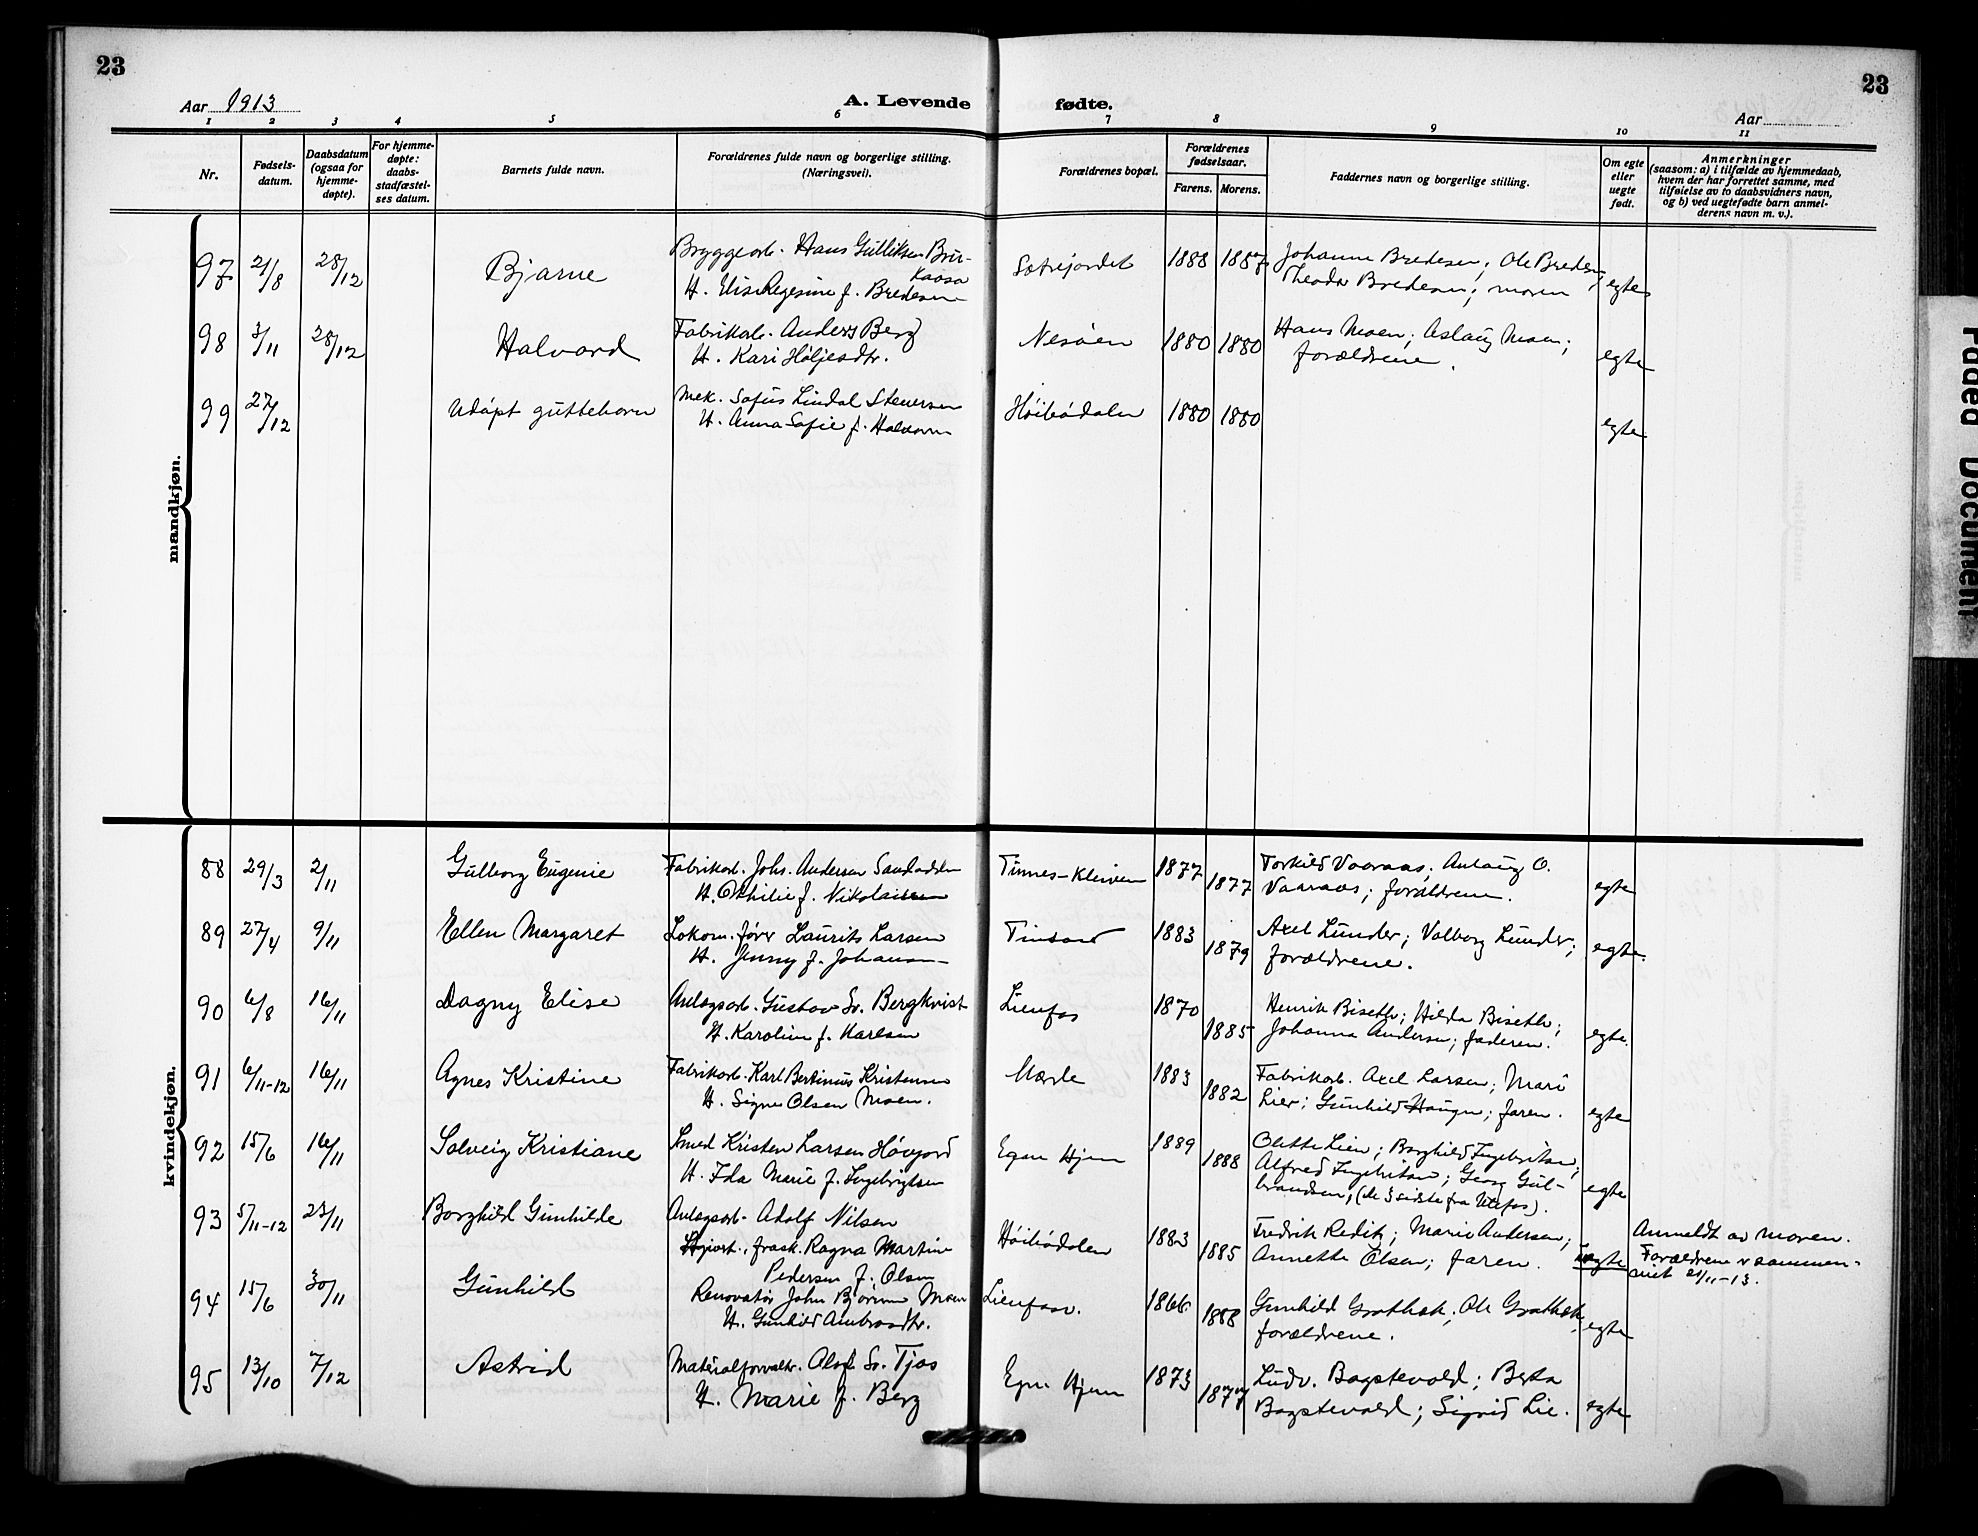 23
23
Aar 1913
A. Levende fødte.
Aar
1 2 3 4 5 6 7 8 9 10 11
Nr.
Fødsels-
datum.
Daabsdatum
(ogsaa for
hjemme-
døpte).
For hjemme-
døpte:
daabs-
stadfæstel-
ses datum.
Barnets fulde navn.
Forældrenes fulde navn og borgerlige stilling.
(Næringsvei).
Forældrenes bopæl.
Forældrenes
fødselsaar.
Farens. Morens.
Faddernes navn og borgerlige stilling.
Om egte
eller
uegte
født.
Anmerkninger
(saasom: a) i tilfælde av hjemmedaab,
hvem der har forrettet samme, med
tilføielse av to daabsvidners navn,
og b) ved uegtefødte barn anmel-
derens navn m. v.).
mandkjøn.
97 21/8 28/12 Bjarne Bryggearb. Hans Gulliksen Brur-
kaasa
H. Elise Regesine f. Bredesen
Sætrejordet 1888 1887 Johanne Bredesen; Ole Bredesen;
Theodor Bredesen; moren egte
98 3/11 28/12 Halvard Fabrikarb. Anders Berg
H. Kari Høljesdtr.
Nesøen 1880 1880 Hans Moen; Aslaug Moen;
forældrene. egte
99 27/12 Udøpt guttebarn Mek. Sofus Lindal Stenersen
H. Anna Sofie f. Halvorsen
Høibødalen 1880 1880 egte
kvindekjøn.
88 29/3 2/11 Gulborg Eugenie Fabrikarb. Johs. Andersen
H. Othilie f. Nikolaisen
Tinnes-Kleiven 1877 1877 Torkild Vaaraas; Aslaug O.
Vaaraas; forældrene. egte
89 27/4 9/11 Ellen Margaret Lokom. fører Laurits Larsen
H. Jenny f. Johansen
Tinsand 1883 1879 Axel Lunder; Valborg Lunder;
forældrene. egte.
90 6/8 16/11 Dagny Elise Anlægsarb. Gustav Sv. Bergkvist
H. Karoline f. Karlsen
Lienfos 1870 1885 Henrik Biseth; Hilda Biseth;
Johanna Andersen; faderen. egte.
91 6/11-12 16/11 Agnes Kristine Fabrikarb. Karl Bertinius Kristensen
H. Signe Olsen Moen.
Mærde 1883 1882 Fabrikarb. Axel Larsen; Mari
Lier; Gunhild Haugen; faren. egte
92 15/6 16/11 Solveig Kristiane Smed Kristen Larsen Høvgard
H. Ida Marie f. Ingebrigtsen
Egne Hjem 1889 1888 Olette Lien; Borghild Ingebritsen;
Alfred Ingebritsen; Georg Gul-
brandsen; (de 3 sidste fra Ulefos). egte
93 5/11-12 23/11 Borghild Gunhilde Anlægsarb. Adolf Nilsen
frask. Ragna Martine
Pedersen f. Olsen
Høibødalen 1883 1885 Fredrik Reditz; Marie Andersen;
Annette Olsen; faren. uegte
Anmeldt av moren.
Forældrene v sammen-
viet 21/11-13.
94 15/6 30/11 Gunhild Renovatør John Bjørnsen Moen
H. Gunhild Ambrosdtr.
Lienfoss. 1866 1888 Gunhild Grotbæk; Ole Grotbæk;
forældrene. egte
95 13/10 7/12 Astrid Materialforvaltr. Olaf Sv. Tjos
H. Marie f. Berg
Egne Hjem 1873 1877 Ludv. Bagstevold; Berta
Bagstevold; Sigrid Lie. egte
Faded Document